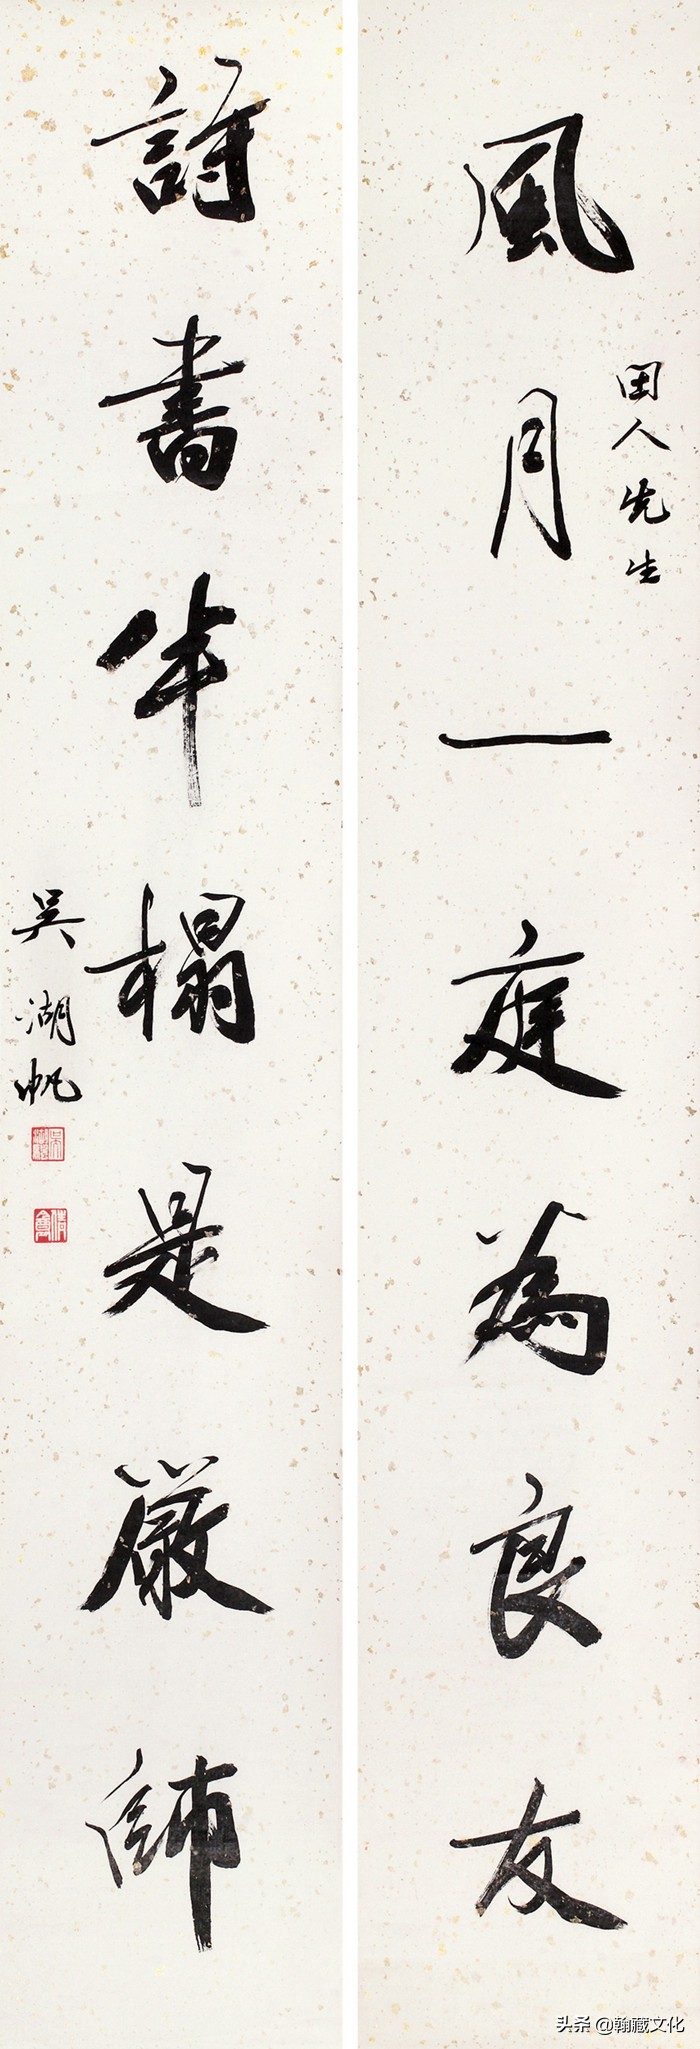 風月一庭為良友
人先生
詩書半榻是嚴師
吳湖帆
头条 @翰藏文化